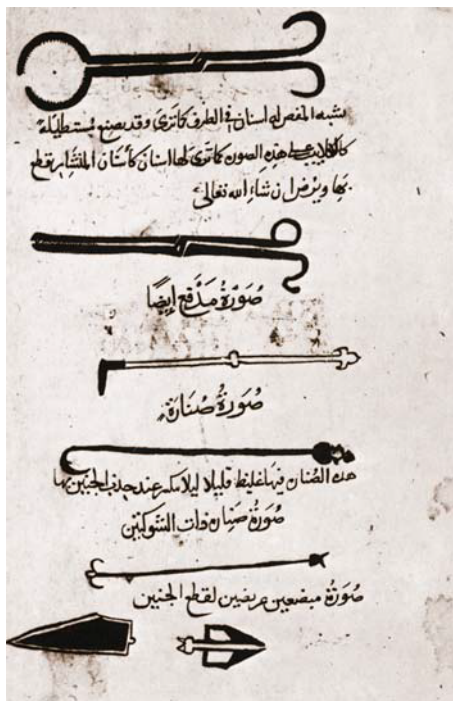 يشبه المقص له اسنان في الطرف كما ترى وقد يصنع مستطيلة
كالكلاليب على هذه الصورة كما ترى لها اسنان كأسنان المنشار يقطع
بها ويرض ان شاء الله تعالى
صُورَةُ مَدْفَع ايضًا
صُورَةُ صُنارَة
هذه الصنارة فيها غليظ قليلا ليلا تنكسر عند جذب الجنين بها
صُورَة صنارة ذات الشوكتين
صُورَة مبضعين عريضين لقطع الجنين